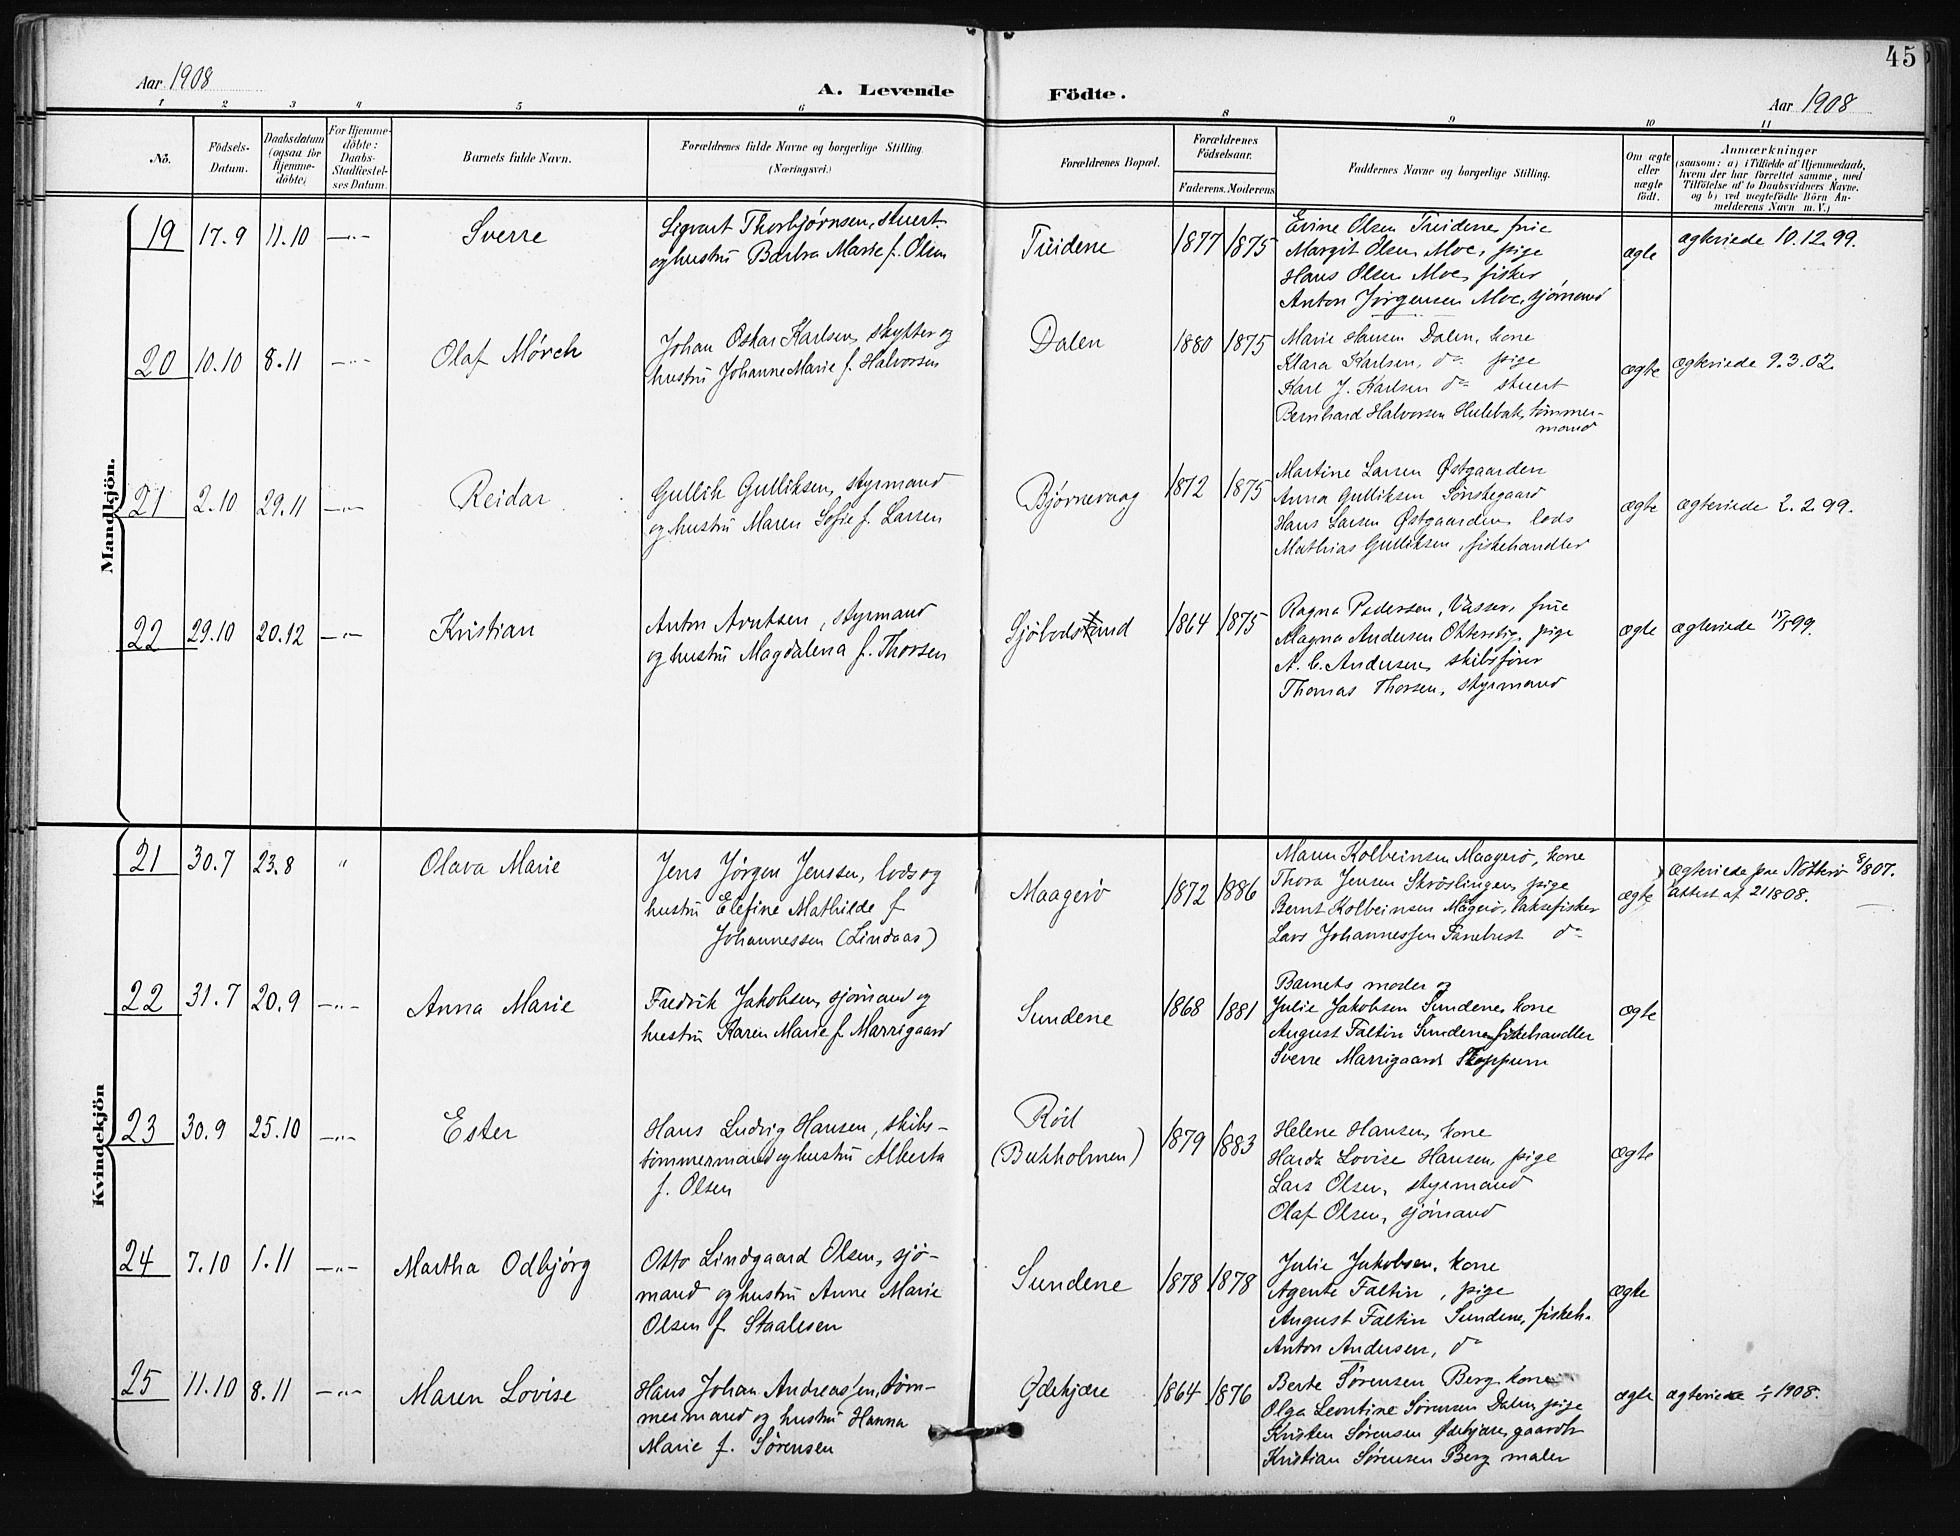 45
Aar 1908
A. Levende
Födte.
Aar 1908
1 2 3 4 5 6 8 9 10 11
No.
Födsels-
Datum.
Daabsdatum
(ogsaa for
Hjemme-
döbte)
For Hjemme-
döbte:
Daabs-
Stadfæstel-
ses Datum.
Barnets fulde Navn.
Forældrenes fulde Navne og borgerlige Stilling.
(Næringsvei.)
Forældrenes Bopæl.
Forældrenes
Födselsaar.
Faderens. Moderens
Faddernes Navne og borgerlige Stilling.
Om ægte
eller
uægte
födt.
Anmærkninger
(saasom: a) i Tilfælde af Hjemmedaab,
hvem der har forrettet samme, med
Tilföielse af to Daabsvidners Navne.
og b) ved uægtefödte Börn An-
melderens Navn m. V.)
Mandkjön.
19 17.9 11.10 —"—
Sverre
Sigvart Thorbjørnsen, stuert
og hustru Barbra Marie f. Olsen
1877 1875
Margit Olsen Moe, pige
Hans Olsen Moe, fisker
Anton Jørgensen Moe, sjømand
ægte
ægteviede 10.12.99.
20 10.10 8.11 —"—
Olaf Mörch
Johan Oskar Karlsen, skytter og
hustru Johanne Marie f. Halvorsen
Dalen
1880 1875
Marie Hansen Dalen, kone
Klara Karlsen, do pige
Karl J. Karlsen do stuert
Bernhard Halvorsen Hulebak, tömmer-
mand
ægte
ægteviede 9.3.02.
21 2.10 29.11 —"—
Reidar
Gullik Gulliksen, styrmand
og hustru Maren Sofie f. Larsen
Bjørnevaag
1872 1875
Martine Larsen Østgaarden
Anna Gulliksen Sönstegaard
Hans Larsen Østgaarden, lods
Mathias Gulliksen, fiskehandler
ægte
ægteviede 2.2.99.
22 29.10 20.12 —"—
Kristian
Anton Arntsen, styrmand
og hustru Magdalena f. Thorsen
1864 1875
Ragna Pedersen, Vasser, frue
Magna Andersen pige
A. C. Andersen, skibsfører
Thomas Thorsen, styrmand
ægte
ægteviede 15/5 99.
Kvindekjön
21 30.7 23.8 "
Olava Marie
Jens Jørgen Jenssen, lods og
hustru Elefine Mathilde f
Johannessen (Lindaas)
Maagerö
1872 1886
Maren Kolbeinsen Maagerö, kone
Thora Jensen Skröslingen, pige
Bernt Kolbeinsen Magerö, laksefisker
Lars Johannessen do
ægte
ægteviede paa Nötterö 8/8 07.
attest af 2/1808.
22 31.7 20.9 —"—
Anna Marie
Fredrik Jakobsen, sjømand og
hustru Karen Marie f Marrigaard
Sundene
1868 1881
Barnets moder og
Julie Jakobsen Sundene, kone
August Faltin Sundene, fiskehandler
Sverre Marrigaard Skoppum
ægte
23 30.9 25.10 —"—
Ester
Hans Ludvig Hansen, skibs-
tömmermand og hustru Alberta
f. Olsen
Röd
(Bukholmen)
1879 1883
Helene Hansen, kone
Harda Lovise Hansen, pige
Lars Olsen, styrmand
Olaf Olsen, sjømand
ægte
24 7.10 1.11 —"—
Martha Odbjørg
Otto Lindgaard Olsen, sjö-
mand og hustru Anne Marie
Olsen f Staalesen
Sundene
1878 1878
Julie Jakobsen, kone
Agente Faltin, pige
August Faltin Sundene, fiskeh.
Anton Andersen, do
ægte
25 11.10 8.11 —"—
Maren Lovise
Hans Johan Andreassen, töm-
mermand og hustru Hanna
Marie f. Sörensen
Ødekjære
1864 1876
Berte Sörensen Berg, kone
Olga Leontine Sörensen Dalen, pige
Kristen Sörensen Ødekjære, gaardb
Kristian Sörensen Berg maler
ægte
ægteviede 1/1 1908.